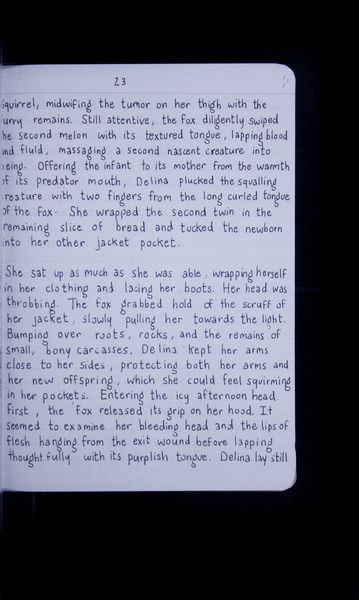 23
squirrel, midwifing the tumor on her thigh with the
urry remains. Still attentive, the fox diligently swiped
he second melon with its textured tongue, lapping blood
and fluid, massaging a second nascent creature into
being. Offering the infant to its mother from the warmth
of its predator mouth, Delina plucked the squalling
creature with two fingers from the long curled tongue
of the fox. She wrapped the second twin in the
remaining slice of bread and tucked the newborn
into her other jacket pocket.
She sat up as much as she was able, wrapping herself
in her clothing and lacing her boots. Her head was
throbbing. The fox grabbed hold of the scruff of
her jacket, slowly pulling her towards the light.
Bumping over roots, rocks, and the remains of
small, bony carcasses, Delina kept her arms
close to her sides, protecting both her arms and
her new offspring, which she could feel squirming
in her pockets. Entering the icy afternoon head
first, the fox released its grip on her hood. It
seemed to examine her bleeding head and the lips of
flesh hanging from the exit wound before lapping
thoughtfully with its purplish tongue. Delina lay still